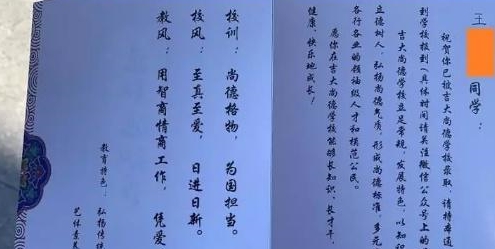 王
同学：
祝贺你已被吉大尚德学校录取，请持本通
到学校报到（具体时间请关注微信公众号上的
吉大尚德学校立足常规，发展特色，以知
立德树人，弘扬尚德气质，形成尚德标准，多元
各行各业的领袖级人才和模范公民。
愿你在吉大尚德学校能够长知识、长才干，
健康、快乐地成长！
校训：尚德格物，为国担当。
校风：至真至爱，日进日新。
教风：用智商情商工作，凭爱
教育特色：弘扬传统
艺体素质